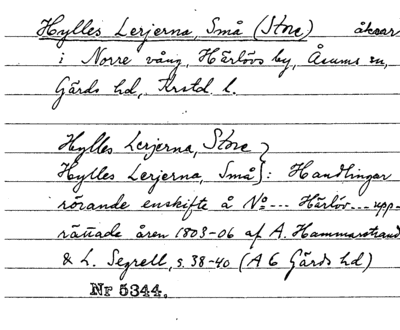 Hylles Lerjerna, Små (Store) åkrar
i Norre vång, Härlövs by, Åsums sn,
Gärds hd, Krstd l.
Hylles Lerjerna, Store }
Hylles Lerjerna, Små } : Handlingar
rörande enskifte å No --- Härlöv --- upp-
rättade åren 1803-06 af A. Hammarstrand
& L. Segrell, s. 38-40 (A 6 Gärds hd)
Nr 5344.